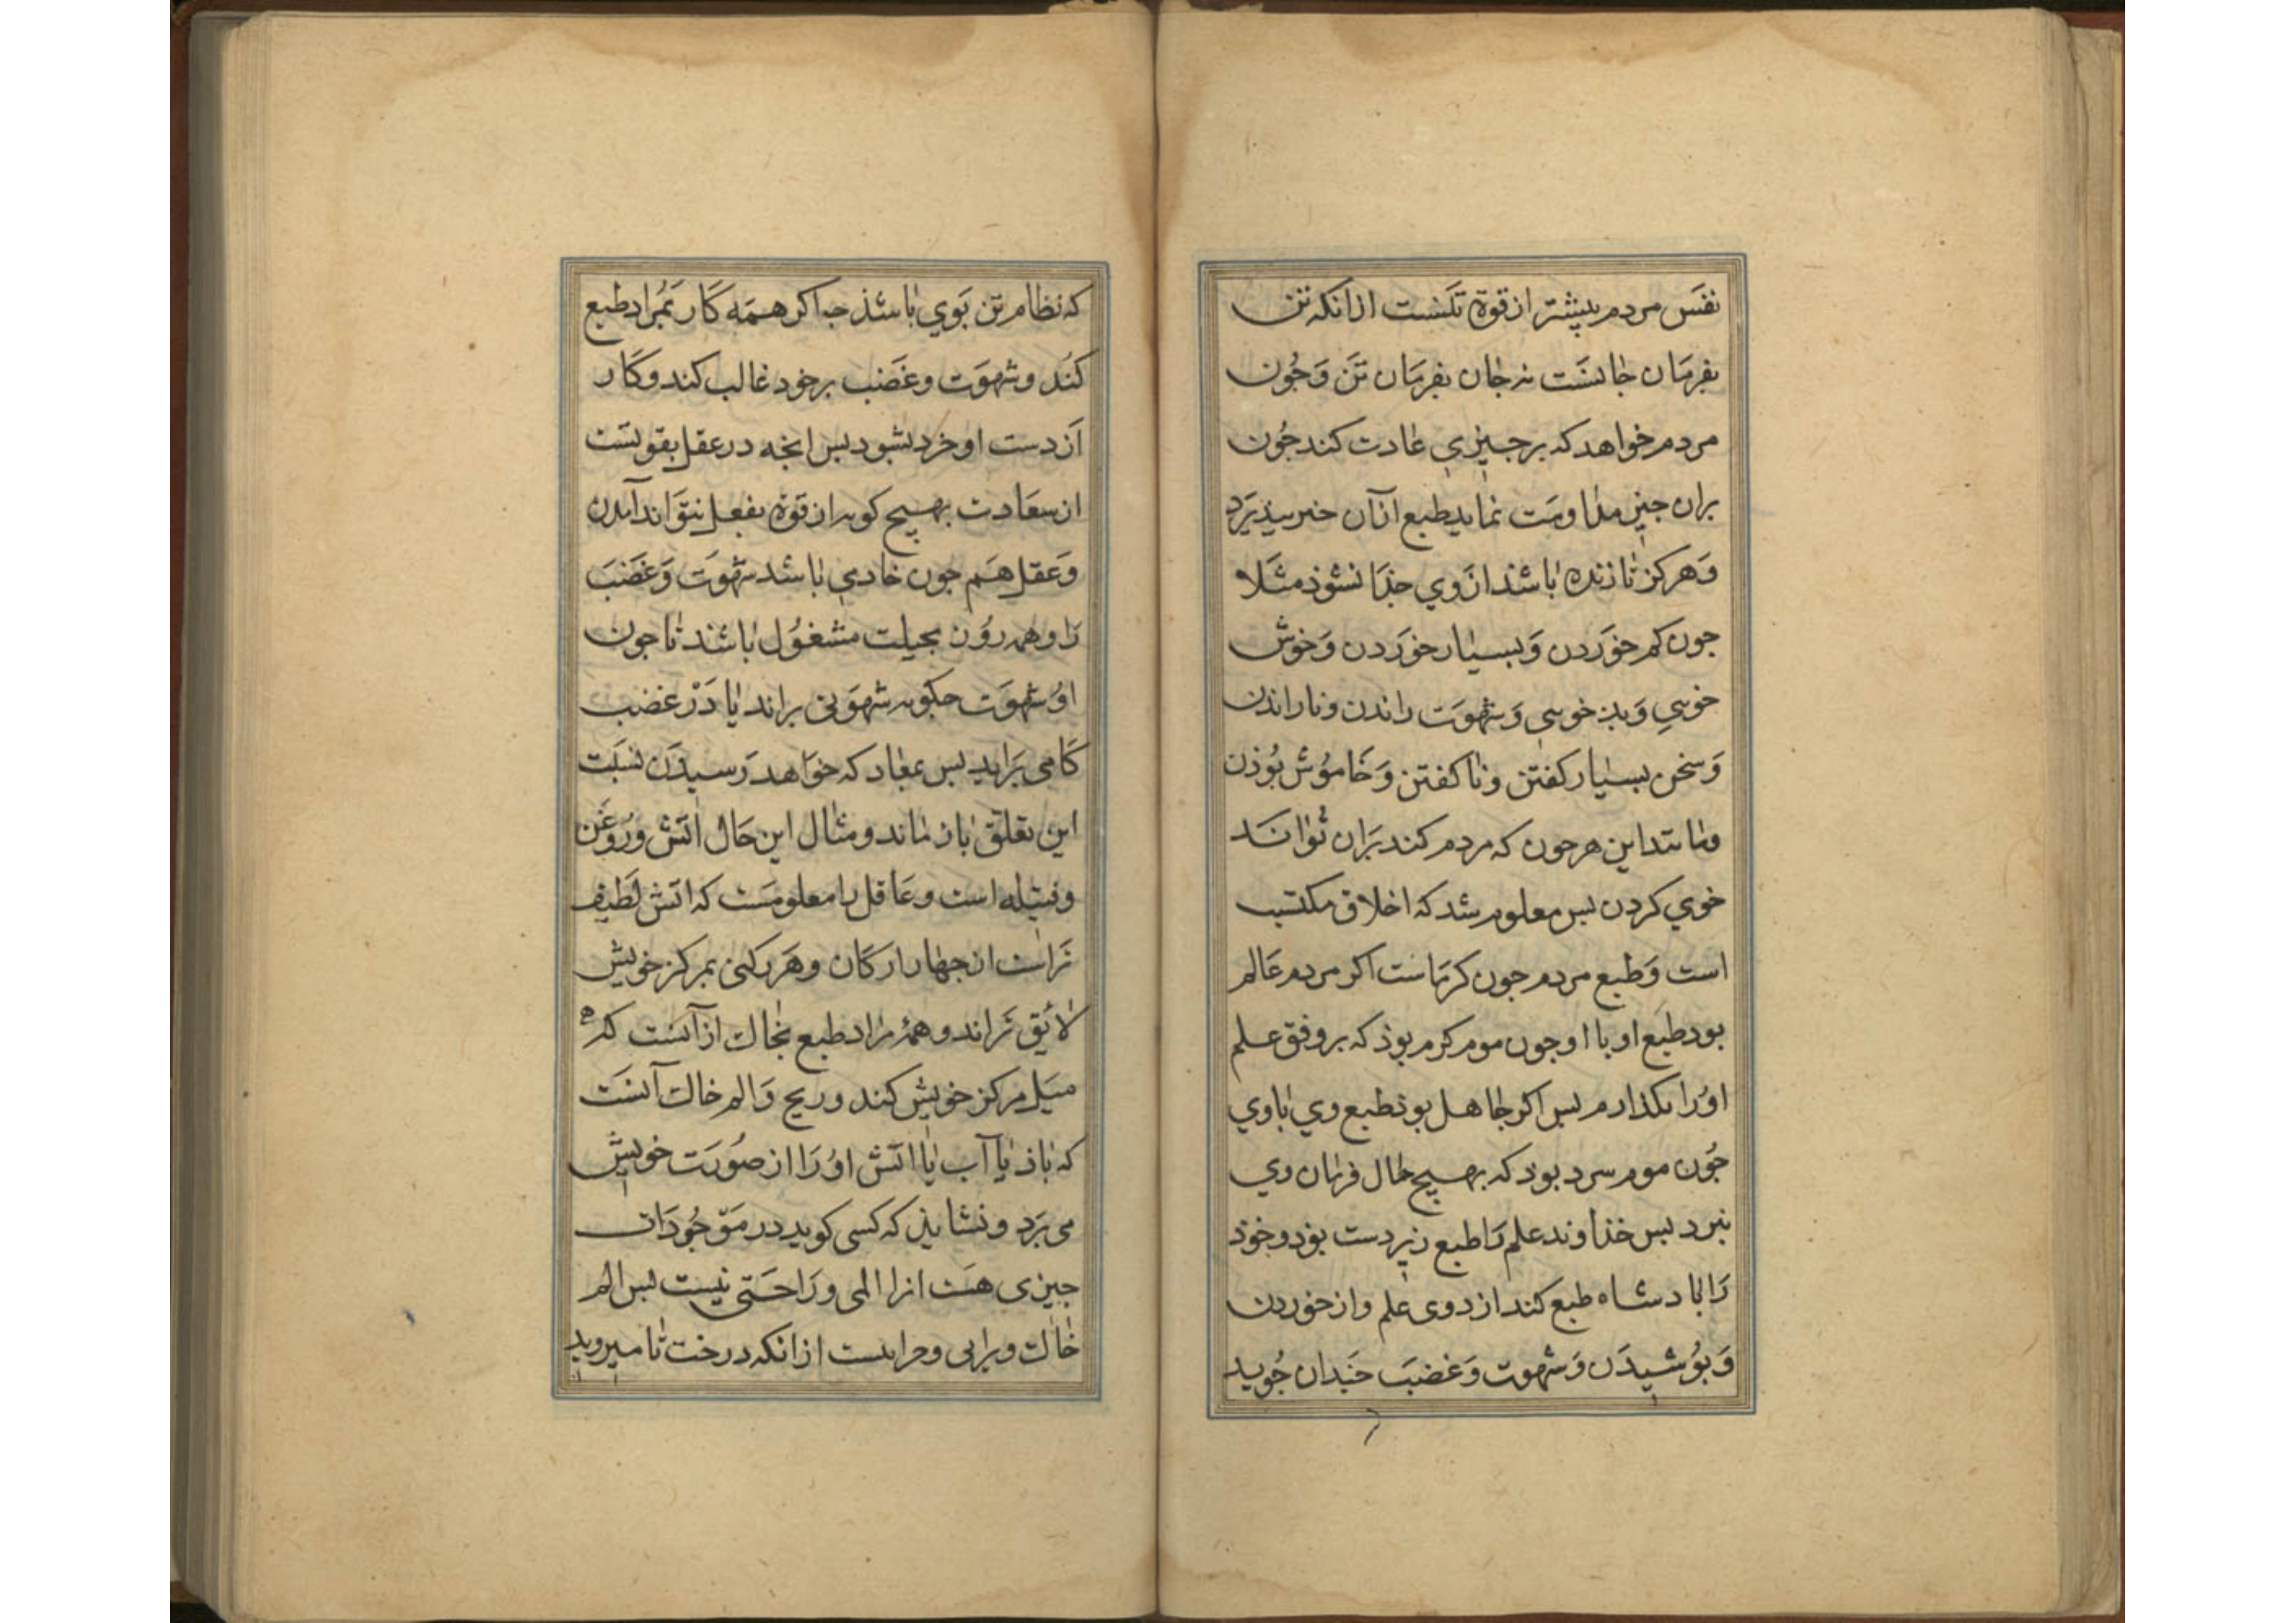 نفَس مردم بیشتر از قوة تنست ازانکه تن
بفرمَان جانست نه جان بفرمَان تَن وَجُون
مردم خواهد که بر جیزی عادت کند جُون
بران جیز مداومَت نماید طبع از آن خبر بیذیرَد
وَهرکز تا زنده باشد ازوی جذا نشوذ مثَلا
جون کم خوَردن وَبسیار خوَردن وَخوش
خویی وَبذ خویی وَشهوَت راندن و نا راندن
وَسخن بسیار کفتن و نا کفتن وَخاموُش بُوذن
و مانند این هرجون که مردم کند بَران تُوانَد
خوی کردن بس معلوم شد که اخلاق مکتسب
است وَطبع مردم جون کرمَاست اکر مردم عَالم
بود طبع او با او جون موم کرم بوذ که بر وفق علم
اوُرا بکذارم بس اکر جاهل بوذ طبع وی باوی
جُون موم سرد بوذ که بهیج حال فرمان وی
نبرد بس خذاوند علم رَا طبع زیر دست بوَد و خوذ
رَا بادشاه طبع کند از دوی علم و از خوردن
وَبوُشیدَن وَشهوت وَغضبَ جَندان جُوید
که نظام تن بَوی باشذ جه اکر همَه کَار بمُراد طبع
کنُد وشهوَت وغضَب بر خود غالب کند و کَار
اَز دست او خرد بشود بس انجه در عقل بقوتست
از سعَادت بهیج کونه از قوة بفعل نتوَاند آمدن
وَعقل هَم جون خادمی باشد شهوَت وَغضَبَ
رَا و همه روُز بحیلت مشغوُل باشذ تا جون
اوُ شهوَت جکونه شهوَتی براند یا دَرْ غضب
کَامی بَراید بس بمعاد که خوَاهد رَسیدَن نسَبت
این تعلق باز ماند و مثال این حَال اتش ورُوغَن
و فتیله است و عَاقل را معلومَست که اتش لَطیف
تَراست از جهار ارکَان وهَر رکنی بمرکز خویش
لائِق تَراند و همهٔ مراد طبع خاک ازآنست که
میَل مرکز خویش کند و رنج وَالم خاک آنسَت
که باذ یا آب یا اتش اوُرَا از صوُرَت خویش
می برَد و نشایذ که کسی کوید در مَوجُودَات
جیزی هسَت انرا المی و رَاحَتی نیست بس الم
خاک ویرانی و خرابیست ازانکه درخت تا میروید